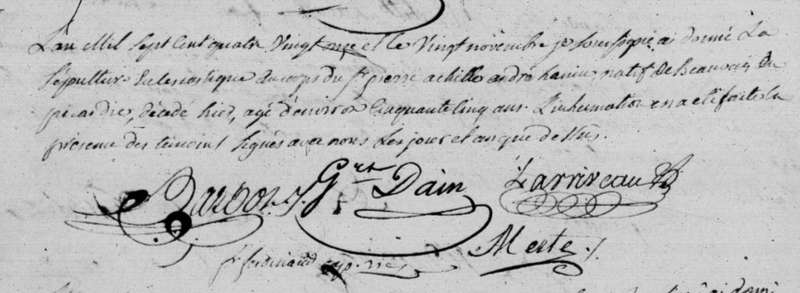 L'an Mil sept cent quatre vingt onze et le vingt novembre je soussigné ai donné la
sépulture Eclesiastique au corps du Sr pierre achille andré natif de Beauvais En
picardie, décédé hier, agé d'environ cinquante cinq ans. L'inhumation en a été faite en
présence des témoins signés avec nous Les jour et an que dessus.
Dain Larriveau
Merte
f. ferdinand